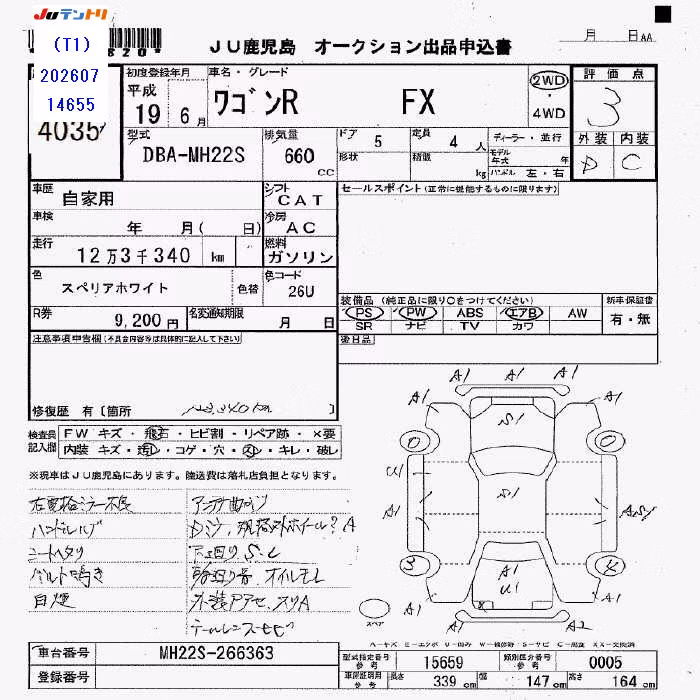 JUテントリ
(T1)
202607
14655
4035
JU鹿児島 オークション出品申込書
月 日 AA
初度登録年月
平成
19 6月
車名・グレード
ワゴンR FX
2WD
・
4WD
評価点
3
外装 内装
D C
型式
DBA-MH22S
排気量
660
cc
ドア 5
形状
定員 4 人
積載 kg
ディーラー・並行
モデル年式 年
ハンドル 左・右
車歴 自家用
シフト CAT
セールスポイント(正常に機能するものに限ります)
車検 年 月( 日)
冷房 AC
走行 12万3千340 km
燃料 ガソリン
色 スペリアホワイト
色替
色コード 26U
R券 9,200円
名変通知期限 月 日
装備品(純正品に限り○をつけてください)
PS ・ PW ・ ABS ・ エアB ・ AW
SR ナビ TV カワ
新車保証書
有・無
注意事項申告欄(不具合内容等は具体的に記入して下さい)
後日品
修復歴 有〔箇所 〕
123,340km
検査員記入欄
FW キズ・飛石・ヒビ割・リペア跡・×要
内装 キズ・汚レ・コゲ・穴・スレ・キレ・破レ
※現車はJU鹿児島にあります。陸送費は落札店負担となります。
ハンドルスレ
シートヘタリ
ベルト鳴き
アンテナ曲り
下回りS.C
オイルモレ
A1 A1 A1
A1 A1
S1
U1
S1
A1 ASY
A1
U1
A1 A1
A1 A2
スペア
A-キズ E-エクボ U-凹み W-補修跡 S-サビ C-腐食 XX-交換済
車台番号 MH22S-266363
登録番号
型式指定番号 参考 15659
類別区分番号 参考 0005
車庫証明用 参考
長さ 339 cm
幅 147 cm
高さ 164 cm